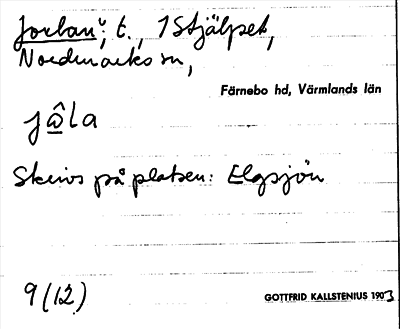 Jorlan", t., 1 Stjälpet,
Nordmarks sn,
Färnebo hd, Värmlands län
jôla
Skrivs på platsen: Elgsjön
9 (12)
GOTTFRID KALLSTENIUS 1903